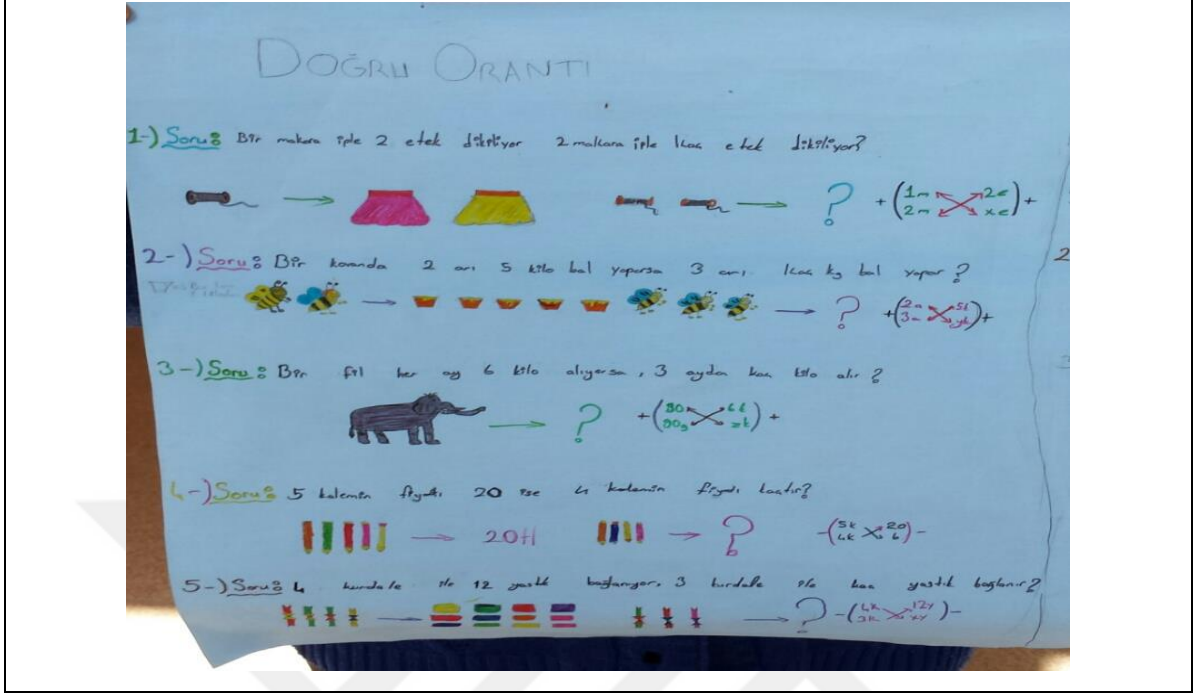 DOĞRU ORANTI
1-) Soru: Bir makara iple 2 etek dikiliyor 2 makara iple kaç etek dikiliyor?
? +(1m 2e
2m xe)+
2-) Soru: Bir kovanda 2 arı 5 kilo bal yaparsa 3 arı kaç kg bal yapar?
? +(2a 5k
3a yk)+
3-) Soru: Bir fil her ay 6 kilo alıyorsa, 3 ayda kaç kilo alır?
? +(30 6k
90g zk)+
4-) Soru: 5 kalemin fiyatı 20 ise 4 kalemin fiyatı kaçtır?
20tl ? -(5k 20
4k)-
5-) Soru: 4 kurdale ile 12 yastık bağlanıyor, 3 kurdale ile kaç yastık bağlanır?
? -(4k 12y
3k xy)-
2
3